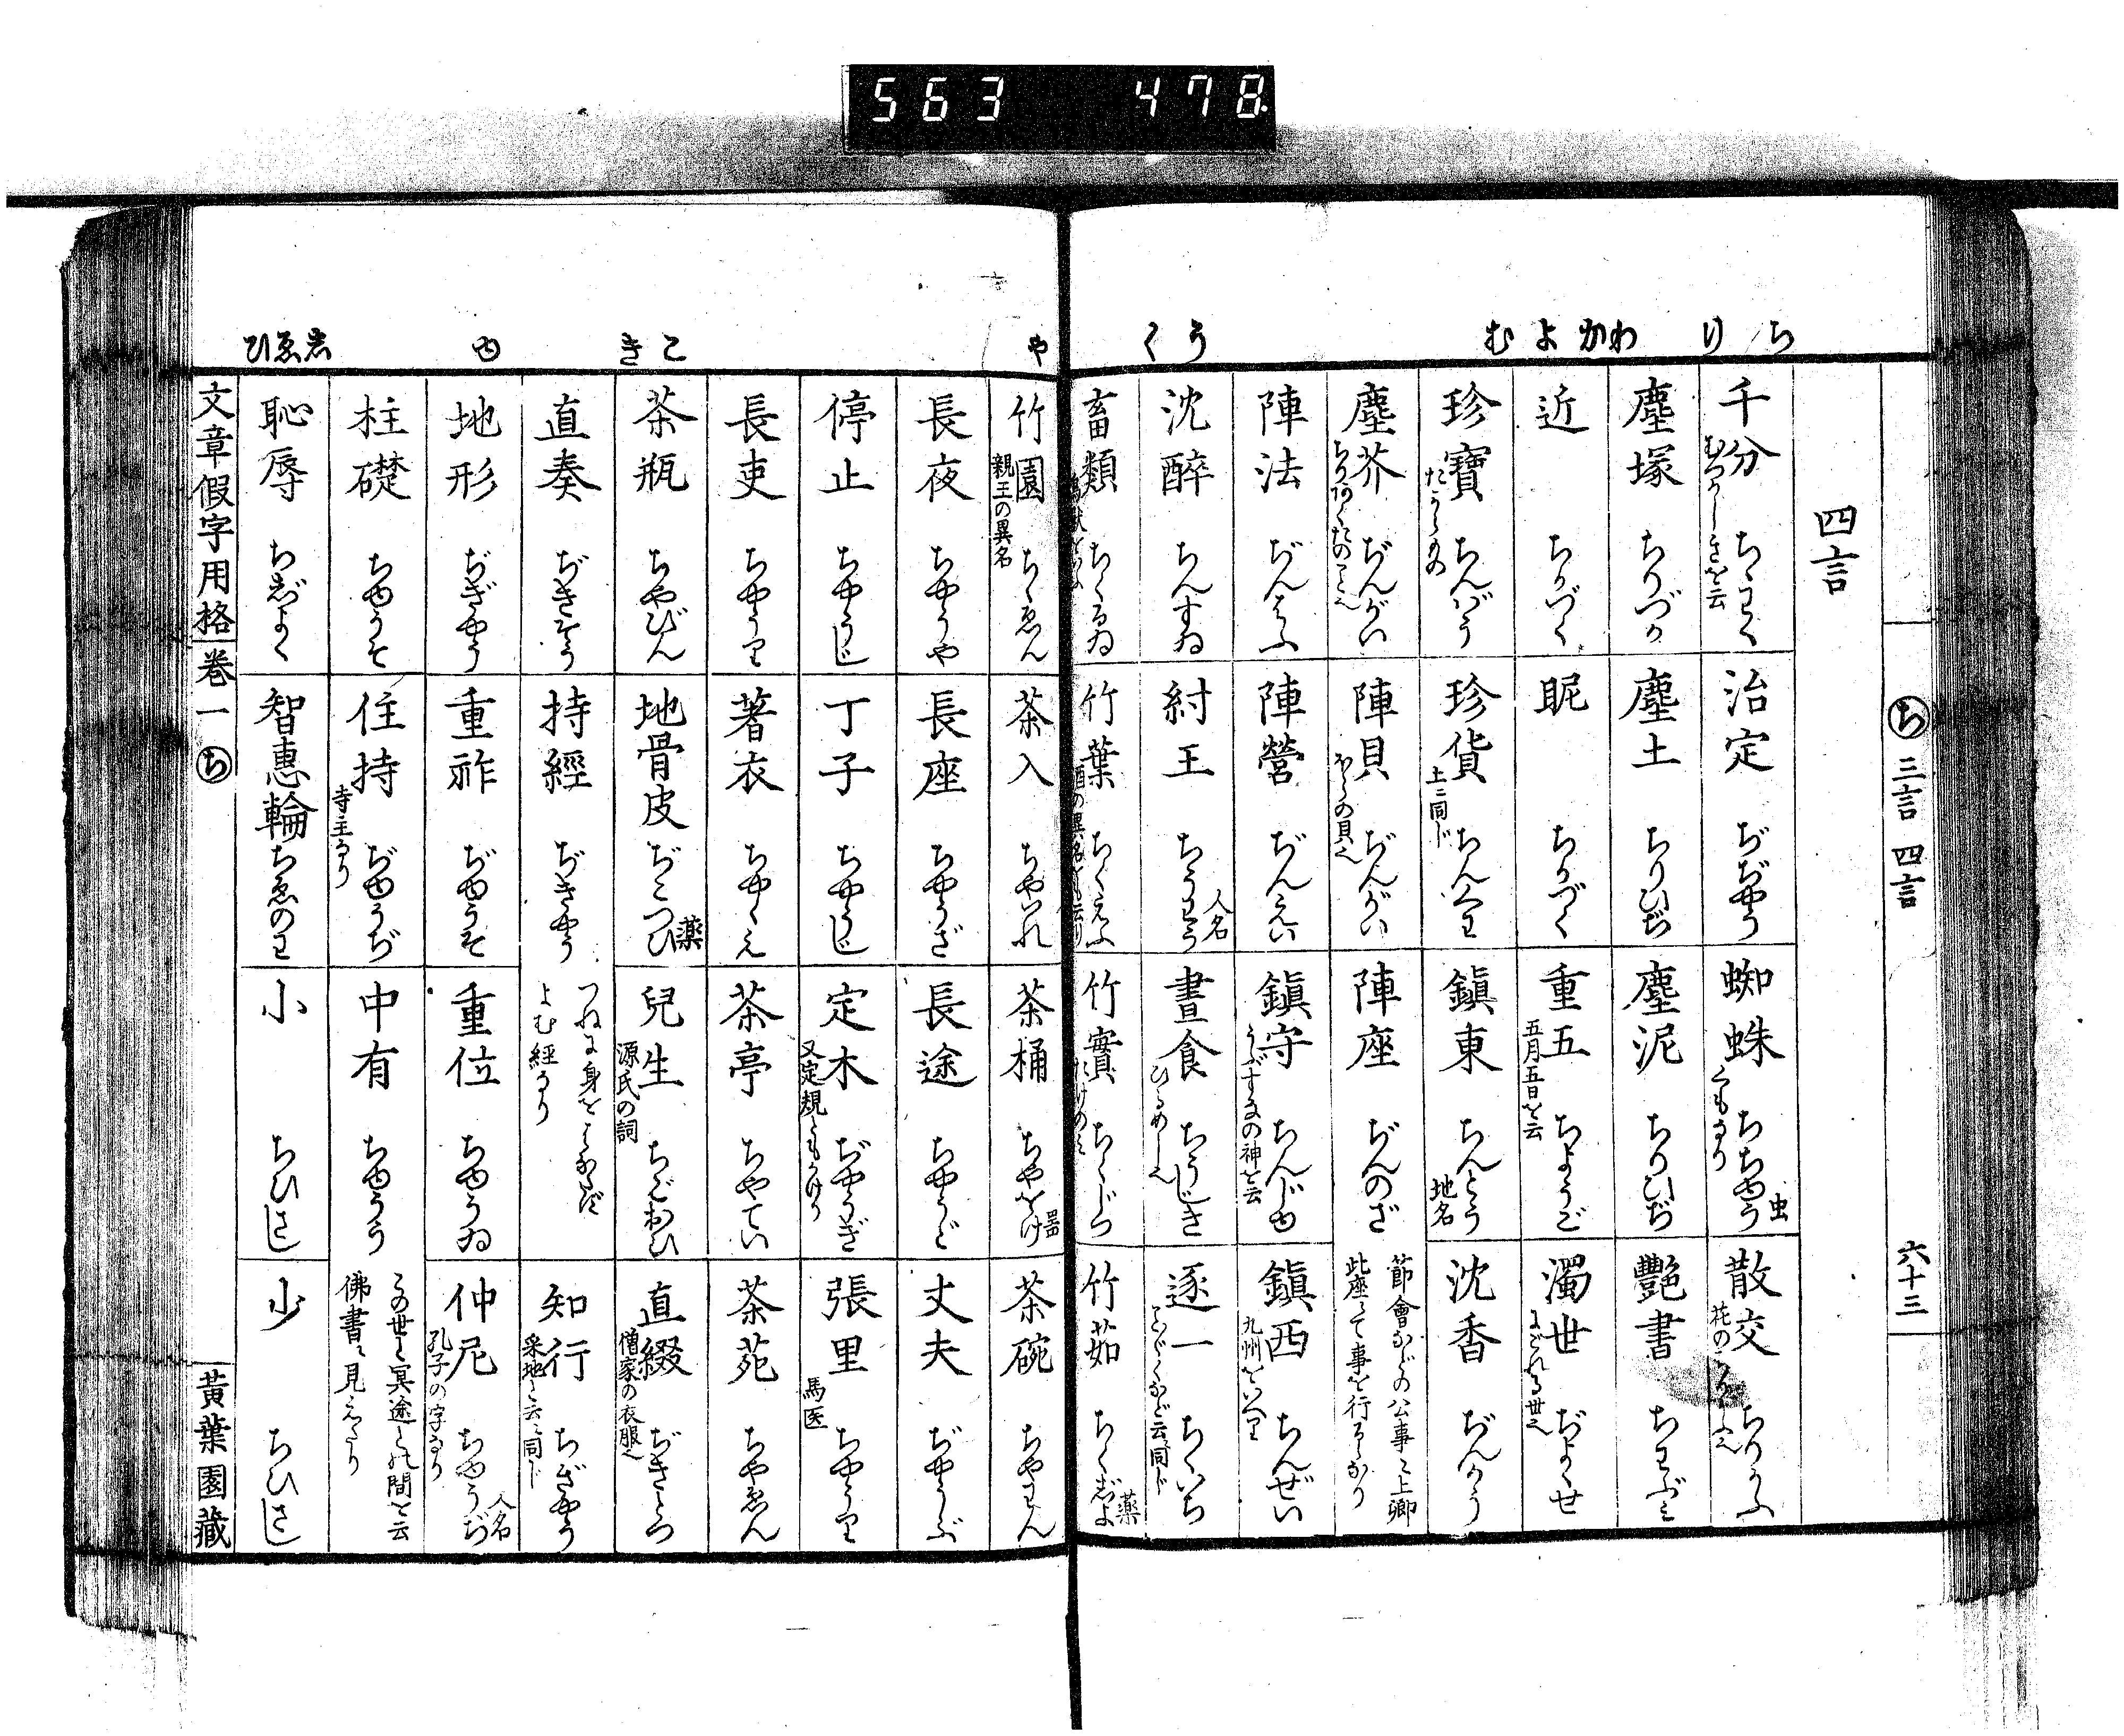 563 478.
ち り わ か よ む う く
ち 三言 四言 六十三
四言
千分 ちわく
治定 ぢぢやう
蜘蛛 ちちゆう 虫
散交 ちりかふ
塵塚 ちりづか
塵土 ちりひぢ
塵泥 ちりひぢ
艷書 ちわぶみ
近 ちかづく
昵 ちかづく
重五 五月五日を云 ちようご
濁世 にごれる世也 ぢよくせ
珍寶 ちんばう
珍貨 上ニ同じ ちんくわ
鎭東 ちんとう 地名
沈香 ぢんかう
塵芥 ぢんがい
陣貝 ほらの貝也 ぢんがい
陣座 ぢんのざ
節會などの公事ニ上卿
陣法 ぢんはふ
陣營 ぢんえい
鎭守 うぶすなの神を云 ちんじゆ
鎭西 九州をいへり ちんぜい
沈醉 ちんすゐ
紂王 ちうわう 人名
晝食 ひるめし也 ちうじき
逐一 ちくいち
畜類 ちくるゐ
竹葉 ちくえふ
竹實 ちくじつ
竹茹 ちくじよ 薬
や こ き ゆ し ゑ ひ
竹園 親王の異名 ちくゑん
茶入 ちやいれ
茶桶 ちやをけ 器
茶碗 ちやわん
長夜 ちやうや
長座 ちやうざ
長途 ちやうど
丈夫 ぢやうぶ
停止 ちやうじ
丁子 ちやうじ
定木 又定規ともかけり ぢやうぎ
張里 馬医 ちやうり
長吏 ちやうり
著衣 ちやくえ
茶亭 ちやてい
茶苑 ちやゑん
茶瓶 ちやびん
地骨皮 ぢこつひ 薬
兒生 源氏の詞 ちごおひ
直綴 僧家の衣服也 ぢきとつ
直奏 ぢきそう
持經 ぢきやう
つねに身をはなたず
よむ經なり
知行 采地と云ニ同じ ちぎやう
地形 ぢぎやう
重祚 ぢゆうそ
重位 ちゆうゐ
仲尼 孔子の字なり ちゆうぢ 人名
柱礎 ちゆうそ
住持 寺主なり ぢゆうぢ
中有 ちゆうう
この世と冥途との間を云
佛書ニ見えたり
恥辱 ちじよく
智惠輪 ちゑのわ
小 ちひさし
少 ちひさし
文章假字用格 卷一 ち 黃葉園藏